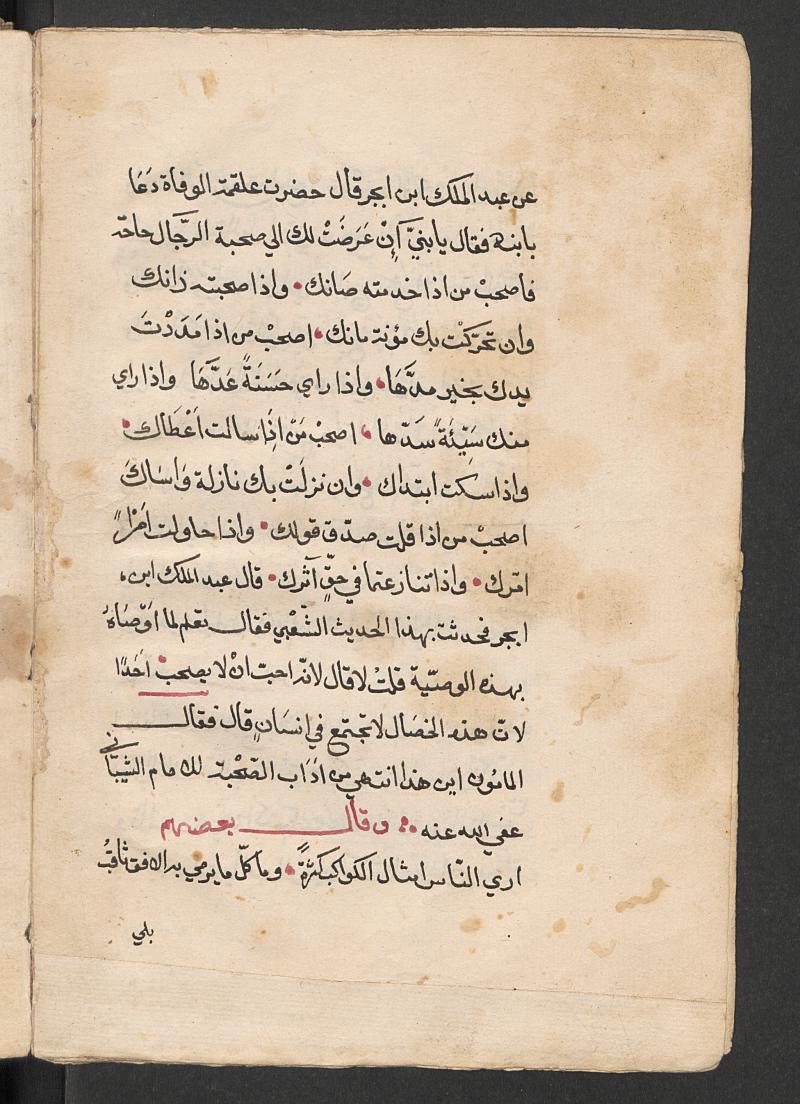 عن عبد الملك ابن ابجر قال حضرت علقمة الوفاة دَعَا
بابنه فقال يا بنيّ اِنْ عَرَضَتْ لك الي صحبة الرّجال حاجة
فاصحبْ من اذا خدمته صَانك • واذا صحبته زانك
وان تحرّكتْ بك مؤنة مانك • اصحبْ من اذا مَدَدْتَ
يدك بخير مدَّهَا • واذا راي حَسَنَةً عَدَّهَا واذا راي
منك سَيّئَةً سَدّها • اصحبْ مَنْ اِذَا سالت اَعْطَاك •
واذا سكت ابتداك • وان نزلَتْ بك نازلة وَاسَاكَ
اصحبْ من اذا قلت صدّق قولك • واذا حاولت اَمْرًا
امّرك • واذا تنازعتما في حقٍّ آثرك • قال عبد الملك ابن
ابجر فحدثت بهذا الحديث الشّعْبي فقال تعلم لما اَوْصَاهُ
بهذه الوصيّة قلتُ لا قال لانّه احبّ انْ لا يصحبْ اَحَدًا
لانّ هذه الخصَال لا تجتمع في اِنسَانٍ قال فقال
المامُون اين هذا انتهي من آدَاب الصّحْبة للامام الشّيبَاني
عفي الله عنه ؞ وقال بعضهم
اري النّاس امثال الكواكب كثرةً • وما كلّ ما يرمي به الافق ثاقبُ
بلي